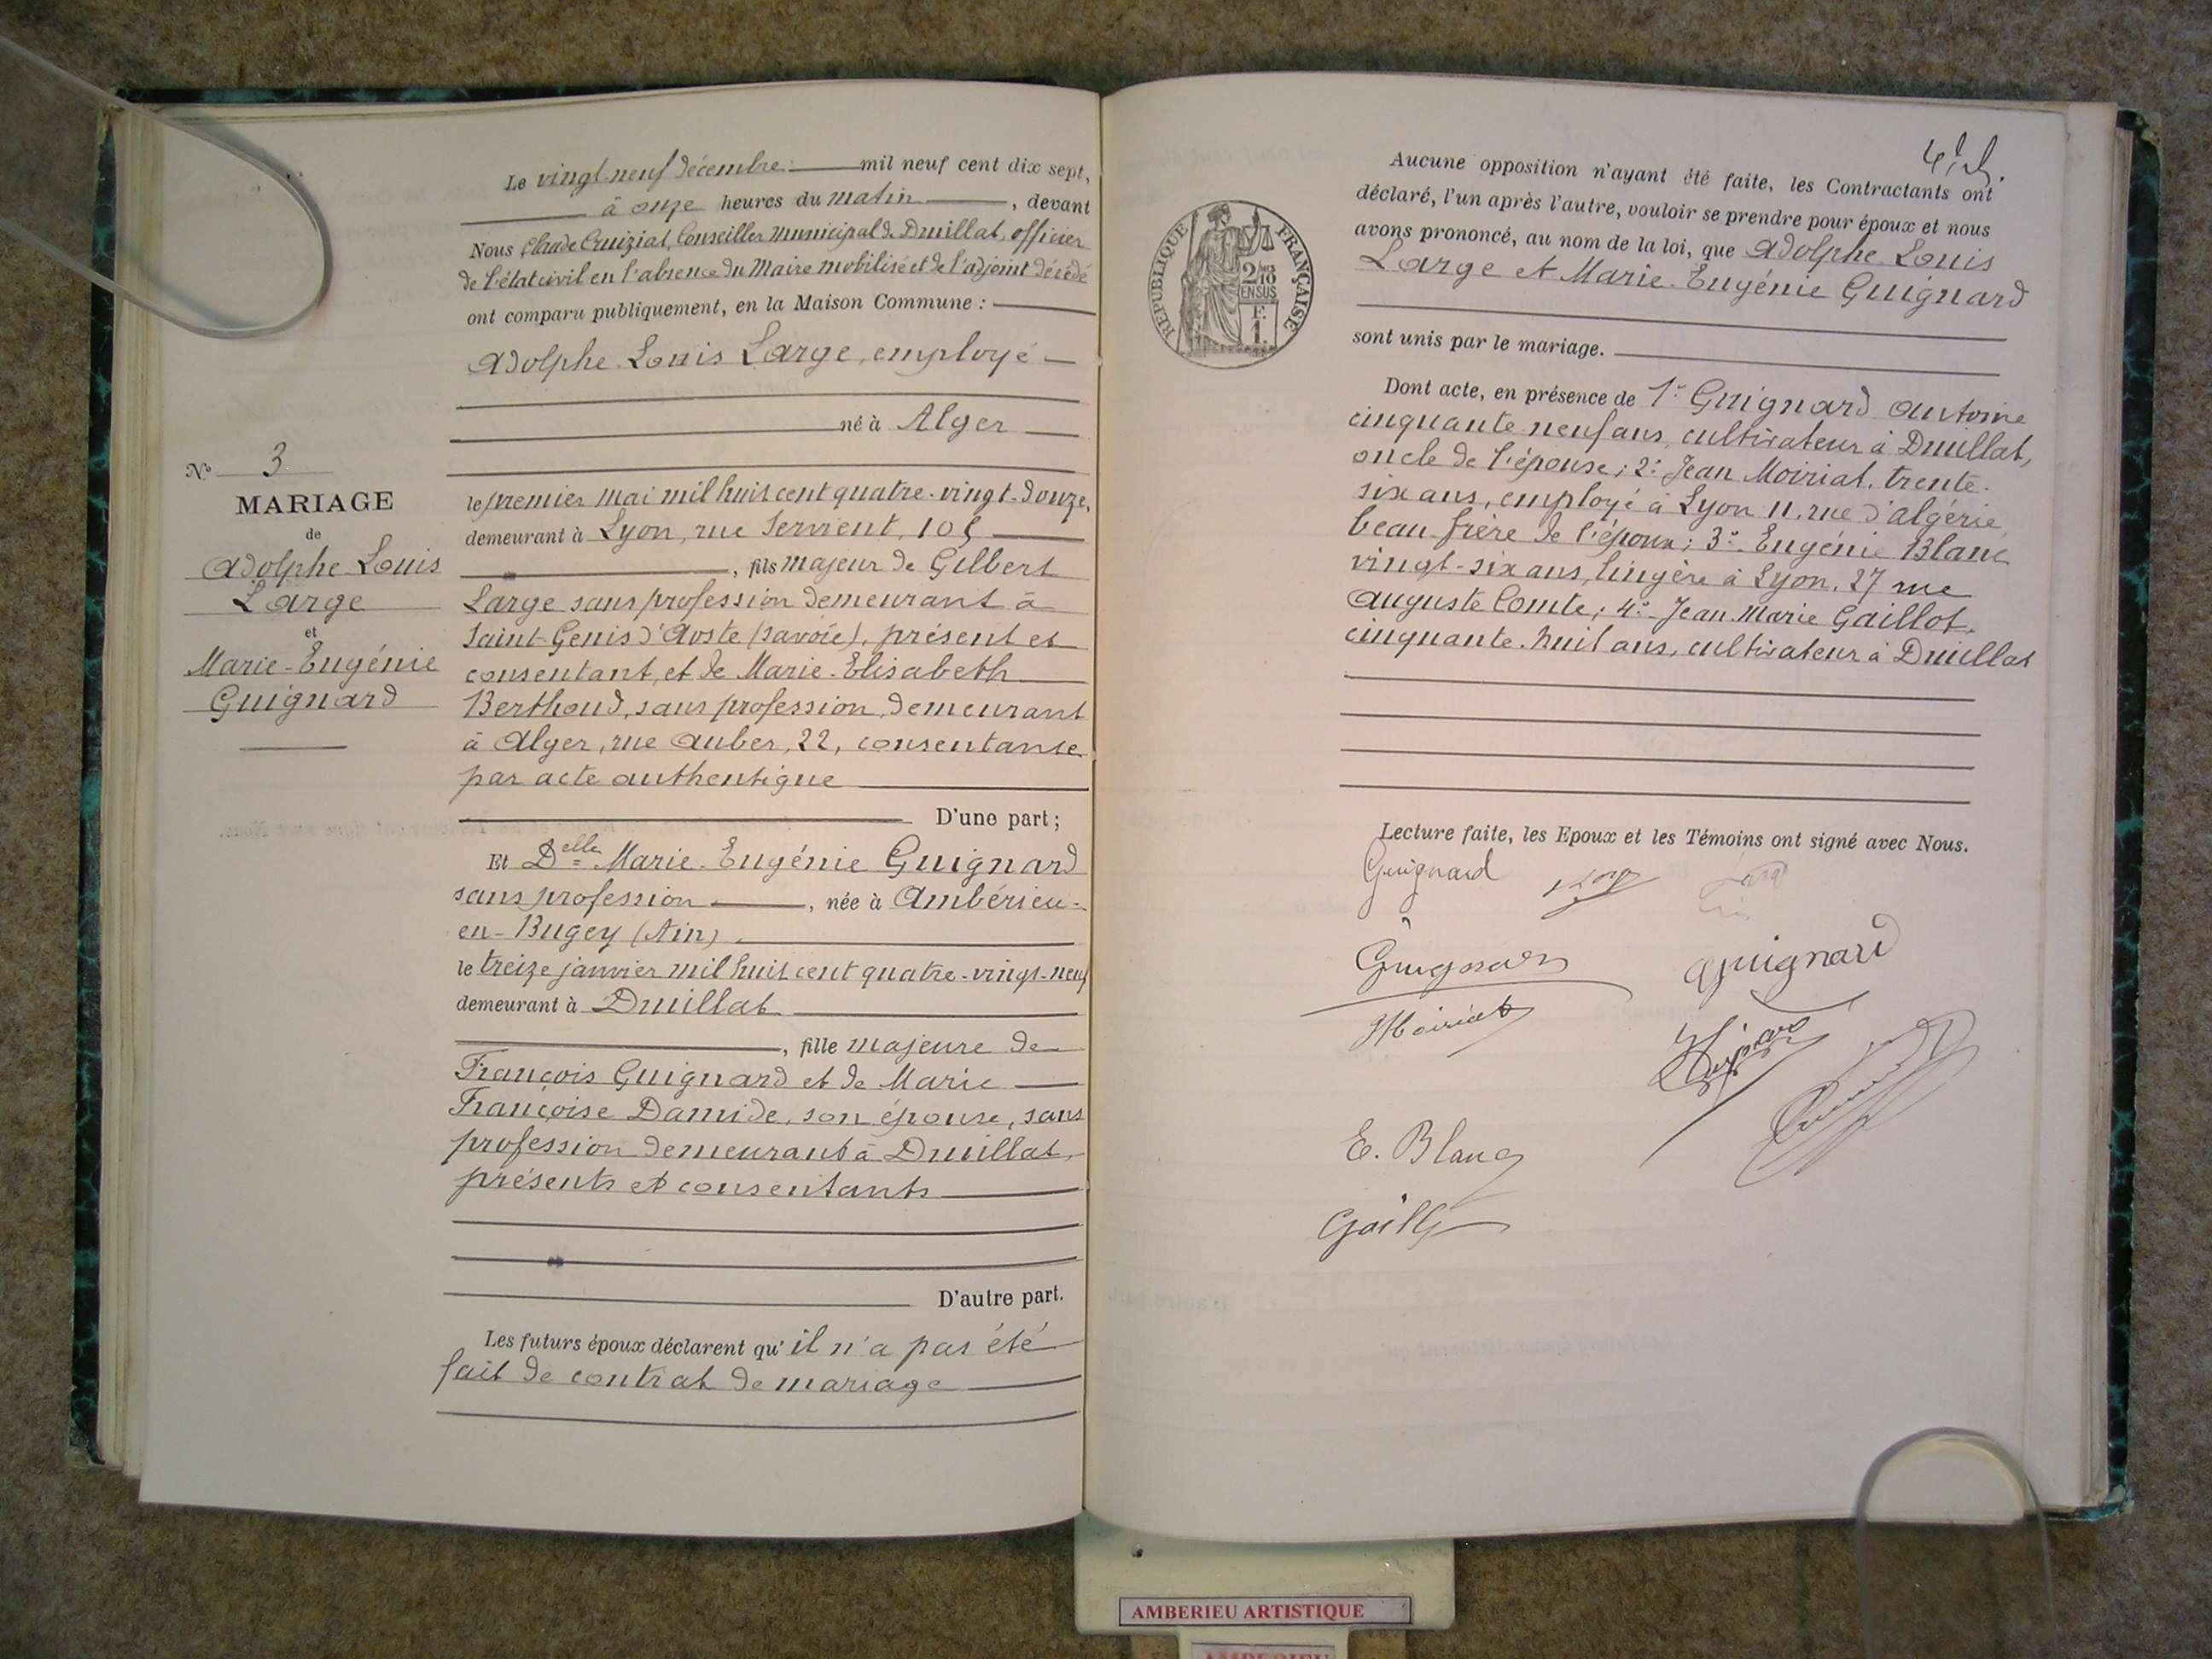 Le vingt-neuf décembre mil neuf cent dix sept,
à onze heures du matin, devant
Nous Claude Cruiziat, Conseiller municipal de Druillat, officier
de l'état civil en l'absence du Maire mobilisé et de l'adjoint décédé
ont comparu publiquement, en la Maison Commune :
Adolphe Louis Large, employé
né à Alger
le premier mai mil huit cent quatre-vingt-douze,
demeurant à Lyon, rue Servient, 105
, fils majeur de Gilbert
Large sans profession demeurant à
Saint-Genis d'Aoste (Savoie), présent et
consentant, et de Marie-Elisabeth
Berthoud, sans profession, demeurant
à Alger, rue Auber, 22, consentante
par acte authentique
D'une part ;
Et Delle Marie-Eugénie Guignard
sans profession, née à Ambérieu-
en-Bugey (Ain)
le treize janvier mil huit cent quatre-vingt-neuf
demeurant à Druillat
, fille majeure de
François Guignard et de Marie
Françoise Damide, son épouse, sans
profession demeurant à Druillat,
présents et consentants
D'autre part.
Les futurs époux déclarent qu'il n'a pas été
fait de contrat de mariage
No 3
MARIAGE
de
Adolphe Louis
Large
et
Marie-Eugénie
Guignard
REPUBLIQUE FRANÇAISE
2/10
EN SUS
F.
1.
Aucune opposition n'ayant été faite, les Contractants ont
déclaré, l'un après l'autre, vouloir se prendre pour époux et nous
avons prononcé, au nom de la loi, que Adolphe Louis
Large et Marie-Eugénie Guignard
sont unis par le mariage.
Dont acte, en présence de 1° Guignard Antoine
cinquante neuf ans, cultivateur à Druillat,
oncle de l'épouse ; 2° Jean Moiriat, trente-
six ans, employé à Lyon 11, rue d'Algérie
beau-frère de l'époux ; 3° Eugénie Blanc
vingt-six ans, lingère à Lyon, 27 rue
Auguste Comte ; 4° Jean Marie Gaillot,
cinquante-huit ans, cultivateur à Druillat
Lecture faite, les Epoux et les Témoins ont signé avec Nous.
Guignard
Guignard
Guignard
Moiriat
E. Blanc
AMBERIEU ARTISTIQUE
AMBERIEU